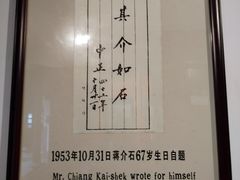 其介如石
中正
1953年10月31日蒋介石67岁生日自题
Mr. Chiang Kai-shek wrote for himself